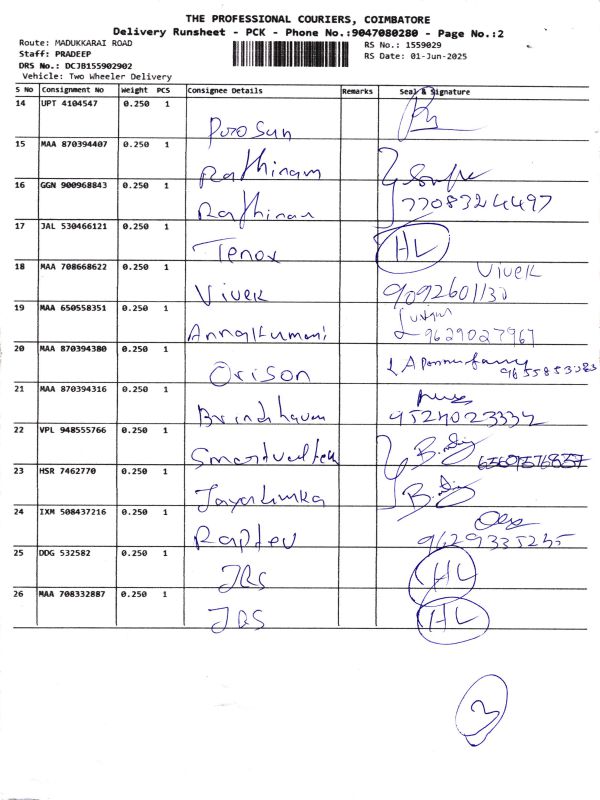 THE PROFESSIONAL COURIERS, COIMBATORE
Delivery Runsheet - PCK - Phone No.:9047080280 - Page No.:2
Route: MADUKKARAI ROAD
Staff: PRADEEP
DRS No.: DCJB155902902
Vehicle: Two Wheeler Delivery
RS No.: 1559029
RS Date: 01-Jun-2025
S No Consignment No Weight PCS Consignee Details Remarks Seal & Signature
14 UPT 4104547 0.250 1
15 MAA 870394407 0.250 1 Rathinam
16 GGN 900968843 0.250 1 Rathinam 7708324497
17 JAL 530466121 0.250 1 Tenox HL
18 MAA 708668622 0.250 1 Vivek Vivek 9092601130
19 MAA 650558351 0.250 1 9629027967
20 MAA 870394380 0.250 1 Orison
21 MAA 870394316 0.250 1 9524023332
22 VPL 948555766 0.250 1
23 HSR 7462770 0.250 1
24 IXM 508437216 0.250 1 9629335235
25 DDG 532582 0.250 1 HL
26 MAA 708332887 0.250 1 HL
3